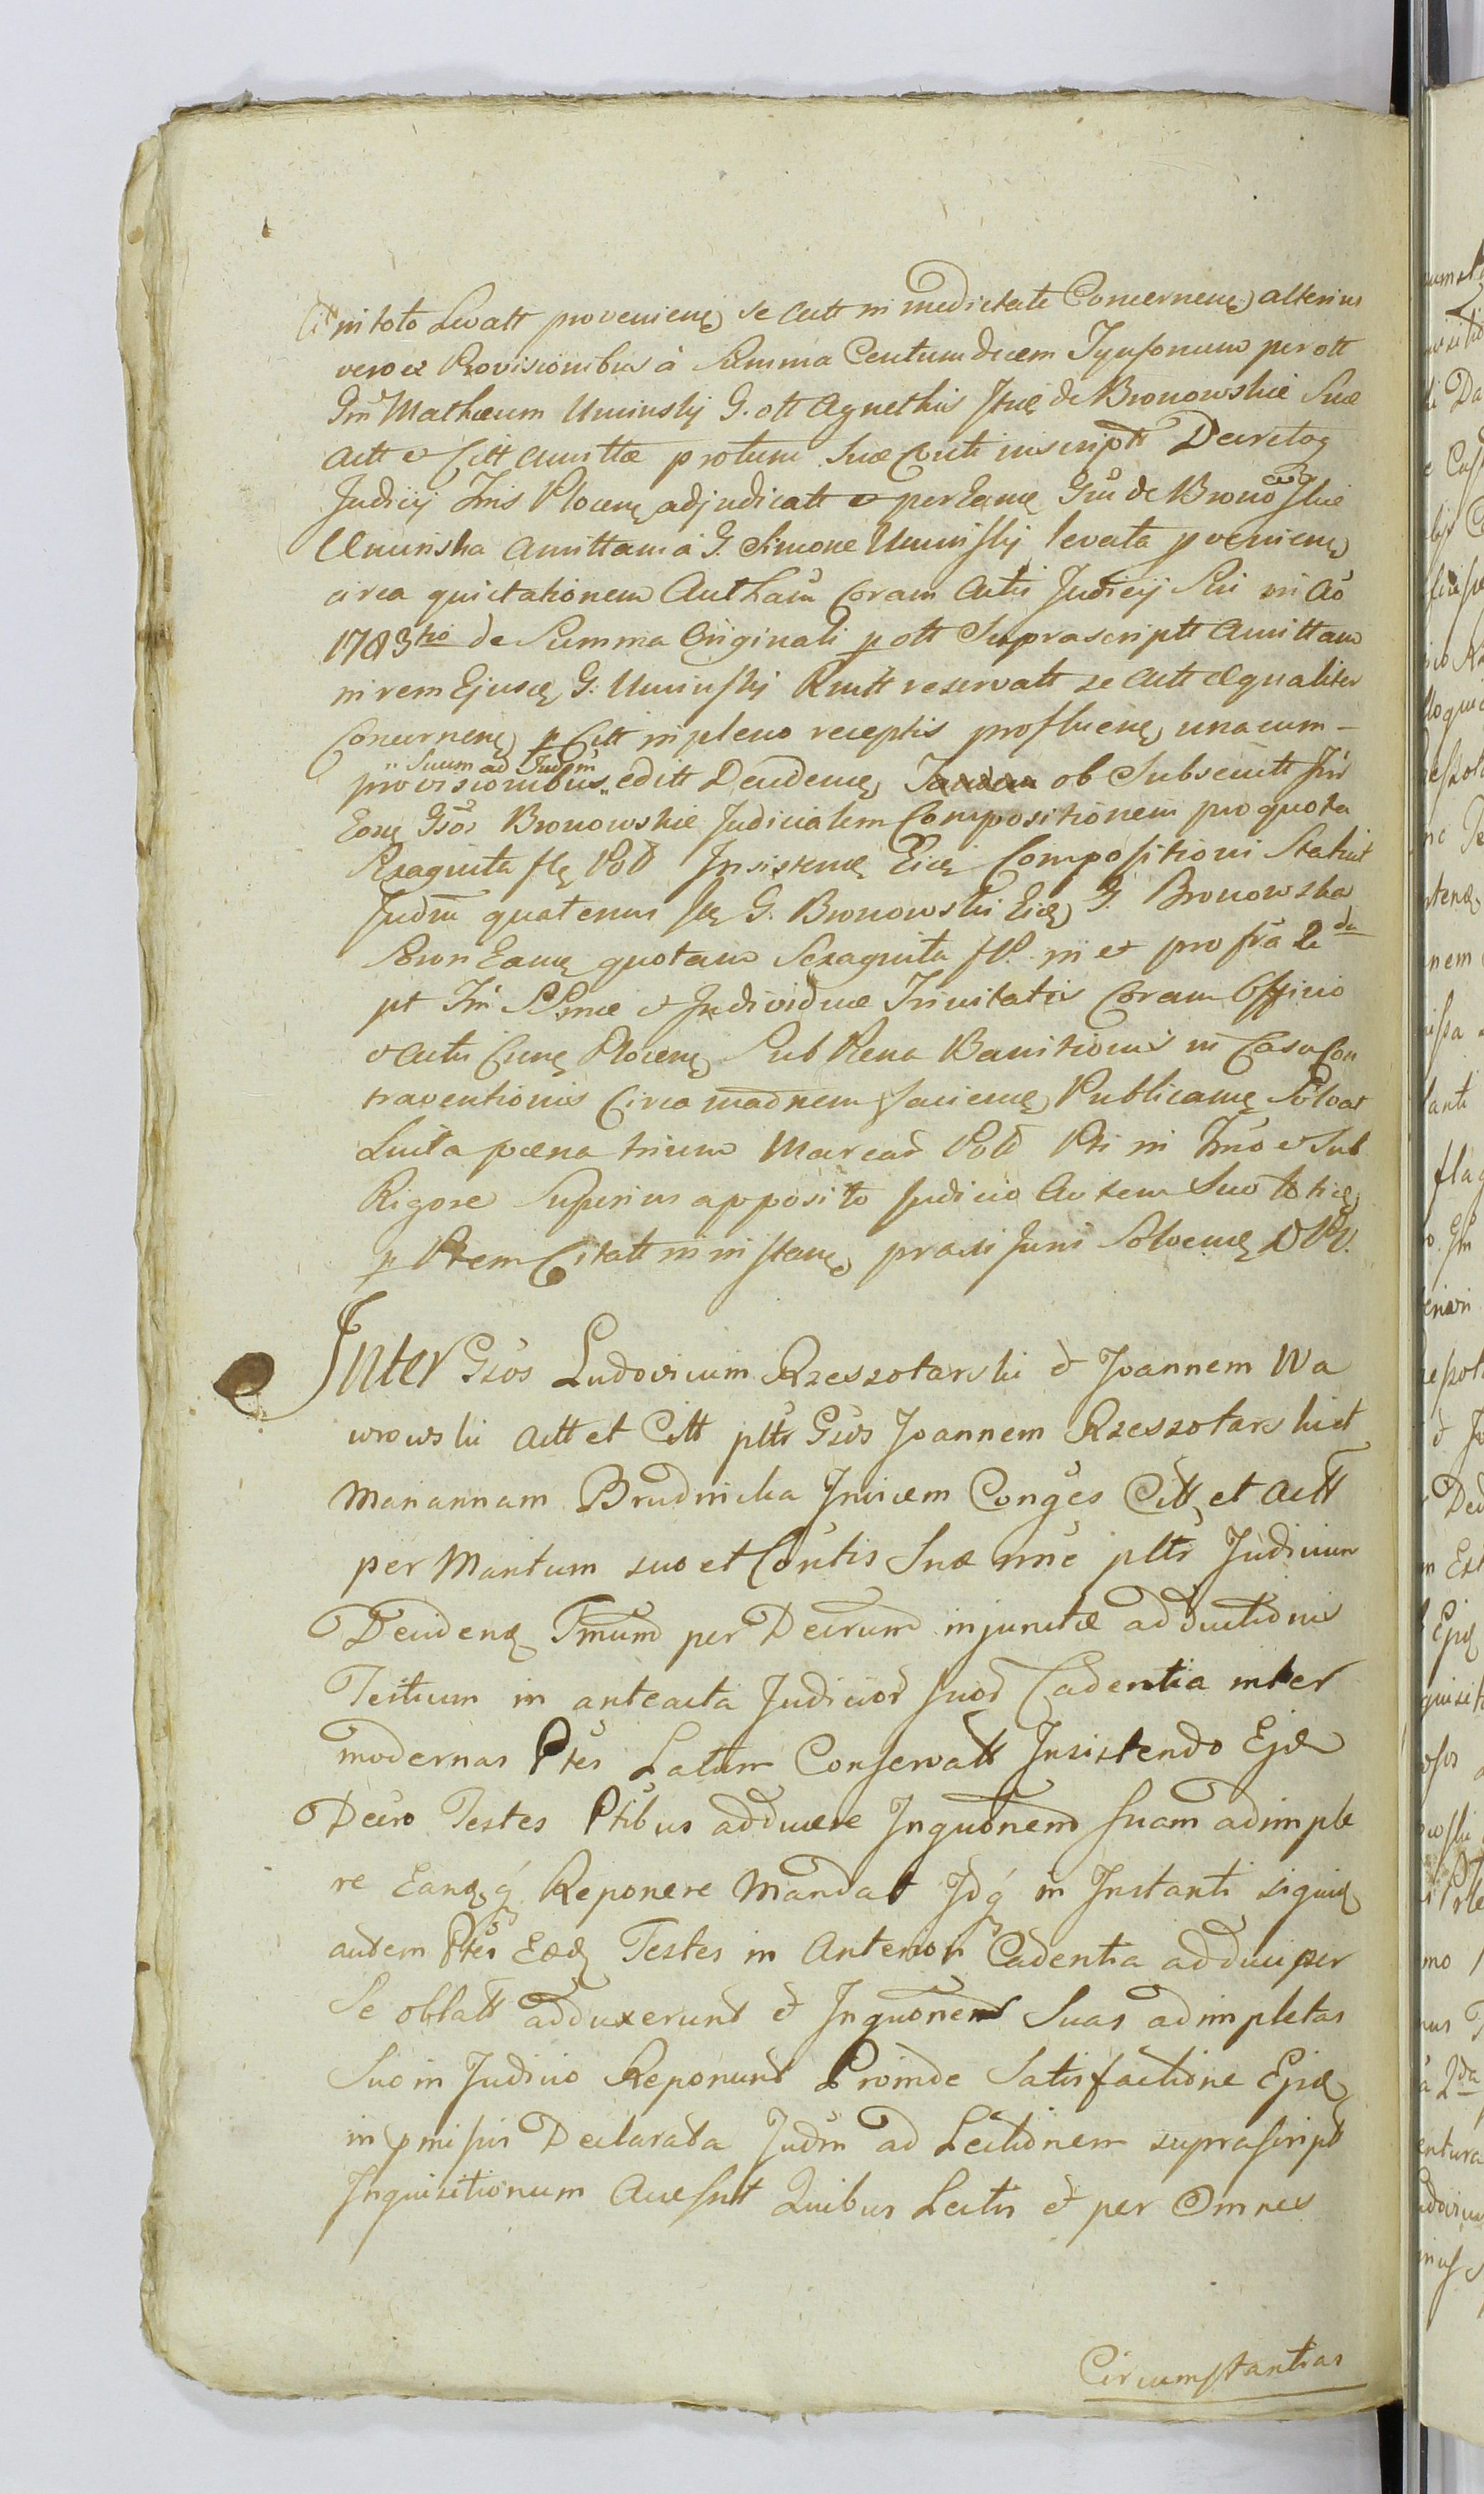 in toto Levatt provenienę se Actt in medietate Concernenę alterius
vero ex Provisionibus à Summa Centum decem Tynfonum per ott
Gm Mathæum Uminskj G. ott Agnethis Stię de Bronowskie Suæ
Actt et Citt Amittæ protunc Suæ Conti inscriptt Decretoq
Judicij Tris Plocenę adjudicatt et per Eamę Gm de Bronowskie
Uminska Amittam à G. Simone Uminskj levata proenienę
circa quietationem Autham Coram Actis Judicij Sui in Ao
1783tio de Summa Originali p ott Suprascriptt Amittam
in rem Ejusdę G: Uminskj Rmtt reservatt se Actt æqualiter
Concernenę p Citt in pleno receptis profluenę una cum –
provisionibus „ Suum ad Judm editt Dendenę ob Subsecutt Inr
Eosę Gsos Bronowskie Judicialem Compositionem pro quota
Sexaginta flę Poll Insistenę Eidę Compositioni Statuit
Judm quatenus Ilę G. Bronowski Eidę G. Bronowska
Soron Eamę quotam Sexaginta fl. in et pro fra 2da
pt Fm SSmæ et Individuæ Trinitatis Coram Officio
et Actis Cienę Plocenę Sub Pena Banitionis in Casu Con
traventionis Circa madnem facienę Publicamę Solvat
Luita pæna trium Marcar Poll Pti in Tmo et Sub
Rigore Superius apposito Judicio autem Suo totię
p Ptem Citatt in instanę præsi Juris Solvenę DPV.
Inter Gsos Ludovicum Rzeszotarski et Joannem Wa
wrowski Actt et Citt pltr Gsos Joannem Rzeszotarski et
Mariannam Brudnicka Invicem Conges Citt et Actt
per Maritum suo et Contis Suæ nne pltr Judicium
Decidenę Tmum per Decrum injunctæ adductionis
Testium in anteacta Judicior suor Cadentia inter
modernas Ptes Latum Conservatt Insistendo Ejdę
Decro Testes Ptibus adducere Inquonem suam adimple
re Eandę q Reponere Mandat Idq in Instanti siquidę
autem Ptes Eosdę Testes in Anteriori Cadentia adduci per
Se oblatt adduxerunt et Inquonem Suas adimpletas
Suo in Judicio Reponunt Proinde Satisfactione Ejsdę
in pmissis Declarata Judm ad Lectionem suprascript
Inquisitionum Accessit Quibus Lectis et per Omnes
Circumstantias